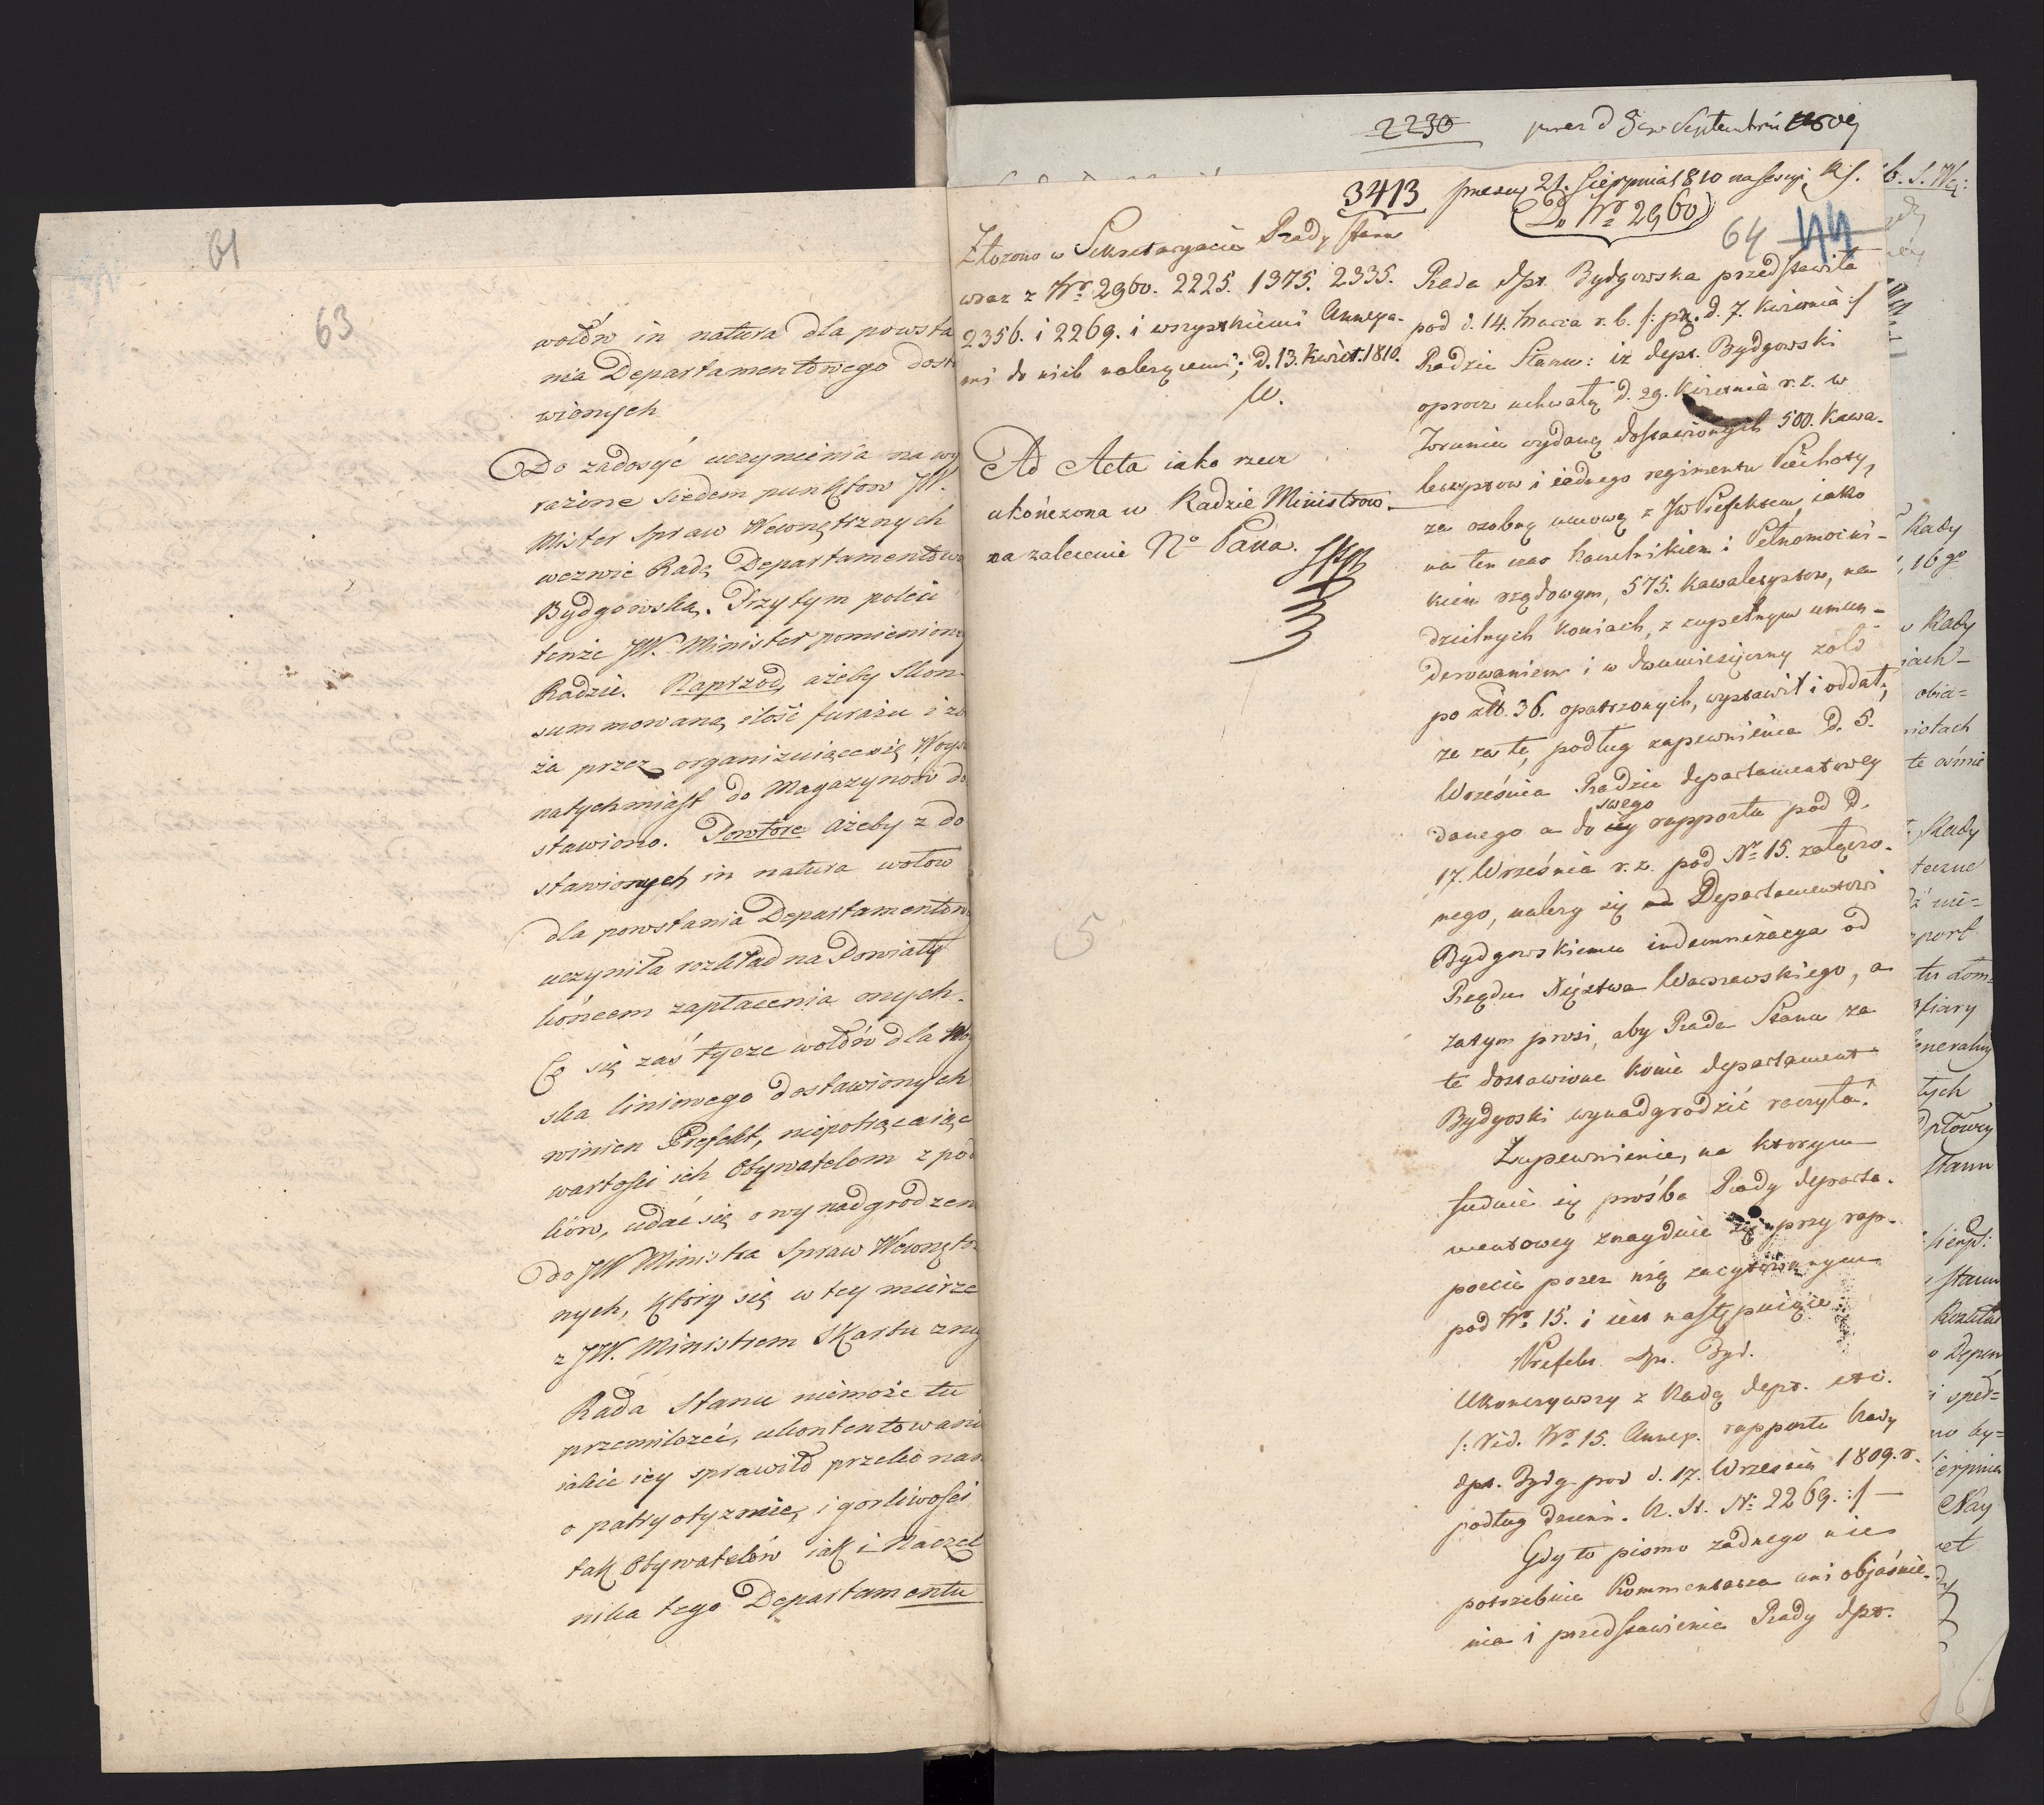 61
63
wołów in natura dla powsta
nia Departamentowego dost
wionych
Do zadosyć uczynienia na wy
rażone siedem punktow JW.
Mister Spraw Wewnętrznych
wezwie Radę Departamentow
Bydgowską. Przytym poleci
tenże JW. Minister pomienioney
Radzie. Naprzod, ażeby skon-
summowaną ilość furażu i zb
ża przez organizuiące się Woys
natychmiast do Magazynów do
stawiono. Powtore ażeby z do
stawionych in natura wołow
dla powstania Departamentow
uczyniła rozkład na Powiaty
końcem zapłacenia onych.
Co się zaś tycze wołów dla Woy
ska liniowego dostawionych
winien Prefekt, niepotrącaiąc
wartości ich Obywatelom z pod
ków, udać się o wynadgrodzen
do JW Ministra Spraw Wewnętrz
nych, który się w tey mierze
z JW. Ministrem Skarbu zny
Rada Stanu niemoże tu
przemilczeć, ukontentowania
iakie iey sprawiło przekonan
o patryotyzmie, i gorliwości
tak Obywatelów iak i Naczel
nika tego Departamentu
2230
3413 praesen 21. Sierpnia 1810 na Sessyi R. S.
Do Nr 2960
64 44
Złożono w Sekretaryacie Rady Stanu
wraz z Nr. 2960. 2225. 1375. 2335.
2356. i 2269. i wszystkiemi Annexa-
mi do nich należącemi; D. 13. Kwiet. 1810.
Ad Acta iako rzecz
ukończona w Radzie Ministrow
na zalecenie No Pana.
5
Rada dpt. Bydgowska przedstawiła
pod d. 14. Marca r. b. /: pr. d. 7. Kwietnia :/
Radzie Stanu: iż dept. Bydgowski
oprocz uchwałą d. 29. Kwietnia r. z. w
Toruniu wydaną dostawionych 500. Kawa-
lerzystow i iednego regimentu Piechoty,
za osobną umową z JW iako
na ten czas Naczelnikiem i Pełnomocni-
kiem rządowym, 575. kawalerzystow, na
dzielnych koniach, z zupełnym umun-
derowaniem i w dwumiesięczny żołd
po złł. 36. opatrzonych, wystawił i oddał;
że za te, podług zapewnienia D. 5.
Września Radzie departamentowey
danego a do swego rapportu pod D.
17. Września r. z. pod Nr 15. załączo-
nego, należy się Departamentowi
Bydgowskiemu indemnizacya od
Rządu Xięstwa Warszawskiego, a
zatym prosi, aby Rada Stanu za
te dostawione konie departament
Bydgoski wynadgrodzić raczyła.
Zapewnienie, na ktorym
funduie się prośba Rady departa-
mentowey znayduie się przy rap-
porcie przez nią zacytowanym
pod Nr 15. i iest następuiące:
Prefekt dpt. Byd.
Ukończywszy z Radą dept. etc.
/: Vid. Nr 15. Annex. rapportu Rady
dpt. Bydg. pod d. 17. Września 1809. r.
podług dzienn. R. St. Nr 2269. :/ —
Gdy to pismo żadnego nie
potrzebuie Kommentarza ani objaśnie-
nia i przedstawienie Rady dpt.